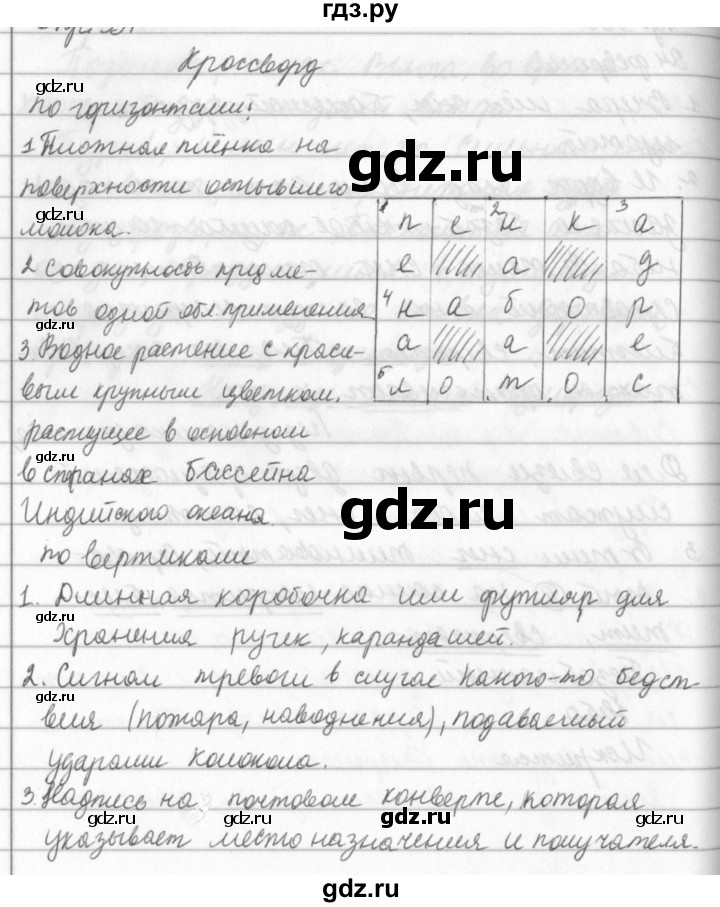 гдз.ру
Кроссворд
по горизонтами:
1 Плотная плёнка на
поверхности остывшего
молока.
2 Совокупность предме-
тов одной обл. применения
3. Водное растение с краси-
вым крупным цветком,
растущее в основном
в странах бассейна
Индийского океана
1 п е 2 н к 3 а
е а д
4 н а б о р
а а е
5 л о т о с
по вертиками
1. Длинная коробочка или футляр для
хранения ручек, карандашей.
2. Сигнал тревоги в случае какого-то бедст-
вия (пожара, наводнения), подаваемый
ударами колокола.
3. Надпись на почтовом конверте, которая
указывает место назначения и получателя.
gdz.ru
gdz.ru
gdz.ru
gdz.ru
gdz.ru
gdz.ru
gdz.ru
gdz.ru
gdz.ru
gdz.ru
gdz.ru
gdz.ru
gdz.ru
gdz.ru